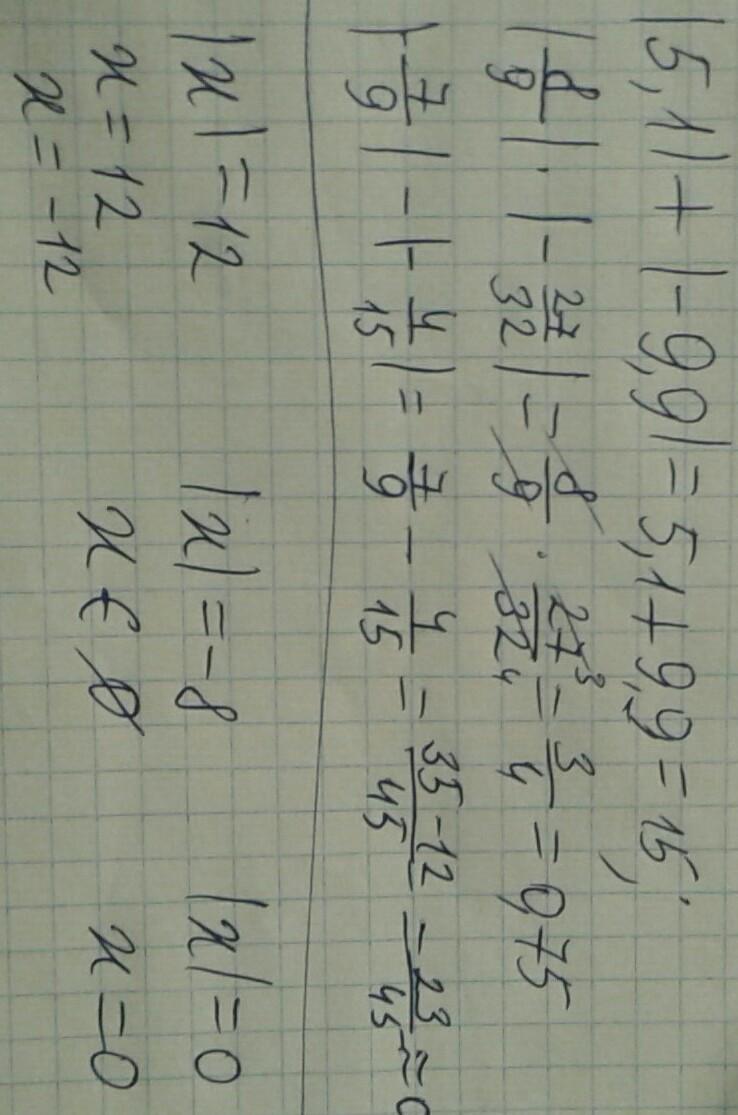 |5,1| + |-9,9| = 5,1 + 9,9 = 15;
|8/9| · |-27/32| = 8/9 · 27/32 = 3/4 = 0,75
|-7/9| - |-4/15| = 7/9 - 4/15 = 35-12/45 = 23/45 ≈ 0
|x| = 12 |x| = -8 |x| = 0
x = 12 x ∈ ∅ x = 0
x = -12